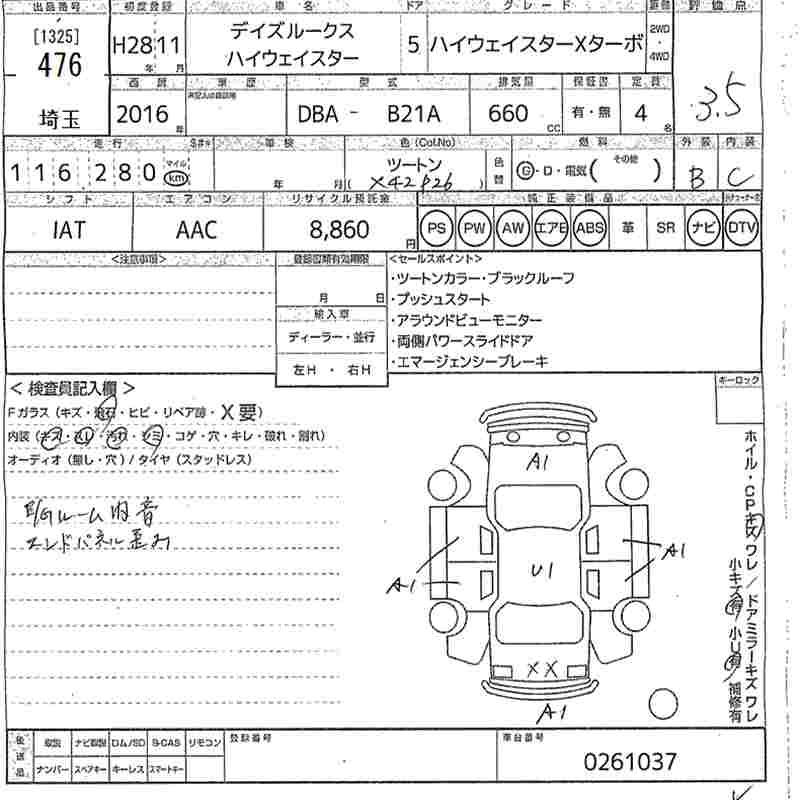 出品番号 初度登録 車名 ドア グレード 評価点
[1325]
476
埼玉
H28 11
年 月
デイズルークス
ハイウェイスター
5
ハイウェイスターXターボ
2WD
・
4WD
3.5
車歴 型式 排気量 保証書 定員
2016 年
DBA - B21A
660 cc
有・無
4 名
走行 車検 色(Col.No) 燃料 外装 内装
116280 マイル km
年 月
ツートン
( X42P26 )
色替
G・D・電気( その他 )
B C
シフト エアコン リサイクル預託金 純正装備品
IAT AAC 8,860 円
PS PW AW エアB ABS 革 SR ナビ DTV
<注意事項> 登録書類有効期限 <セールスポイント>
月 日
輸入車
ディーラー・並行
左H ・ 右H
・ツートンカラー・ブラックルーフ
・プッシュスタート
・アラウンドビューモニター
・両側パワースライドドア
・エマージェンシーブレーキ
キーロック
< 検査員記入欄 >
Fガラス (キズ・飛石・ヒビ・リペア跡・X要)
内装 (キズ・スレ・汚れ・シミ・コゲ・穴・キレ・破れ・割れ)
オーディオ (無し・穴) / タイヤ (スタッドレス)
E/Gルーム内音
エンドパネル歪み
A1
A1
U1
A1
XX
A1
ホイル・CPキズ ワレ / ドアミラーキズ ワレ
小キズ有 小U有 補修有
後送品
取説 ナビ取説 ロム/SD B-CAS リモコン
ナンバー スペアキー キーレス スマートキー
登録番号 車台番号
0261037